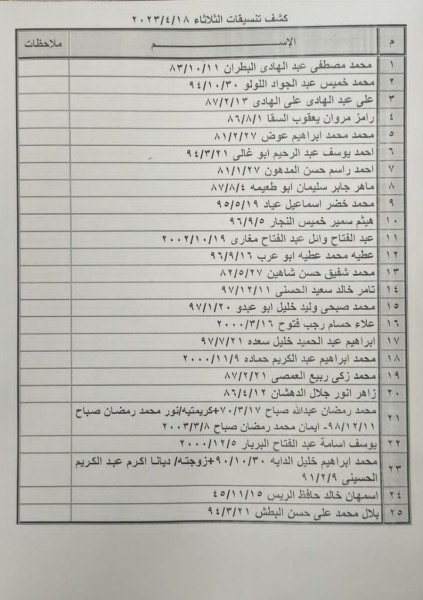 كشف تنسيقات الثلاثاء ٢٠٢٣/٤/١٨
م الإســـــــم ملاحظات
١ محمد مصطفى عبد الهادى البطران ٨٣/١٠/١١
٢ محمد خميس عبد الجواد اللولو ٩٤/١٠/٣٠
٣ على عبد الهادى على الهادى ٨٧/٢/١٣
٤ رامز مروان يعقوب السقا ٨٦/٨/١
٥ محمد محمد ابراهيم عوض ٨١/٢/٢٧
٦ احمد يوسف عبد الرحيم ابو غالى ٩٤/٣/٢١
٧ احمد راسم حسن المدهون ٨١/١/٢٧
٨ ماهر جابر سليمان ابو طعيمه ٨٧/٨/٤
٩ محمد خضر اسماعيل عياد ٩٥/٥/١٩
١٠ هيثم سمير خميس النجار ٩٦/٩/٥
١١ عبد الفتاح وائل عبد الفتاح مغارى ٢٠٠٢/١٠/١٩
١٢ عطيه محمد عطيه ابو عرب ٩٦/٩/١٦
١٣ محمد شفيق حسن شاهين ٨٢/٥/٢٧
١٤ تامر خالد سعيد الحسنى ٩٧/١٢/١١
١٥ محمد صبحى وليد خليل ابو عبدو ٩٧/١/٢٠
١٦ علاء حسام رجب فتوح ٢٠٠٠/٣/١٦
١٧ ابراهيم عبد الحميد خليل سعده ٩٧/٧/٢١
١٨ محمد ابراهيم عبد الكريم حماده ٢٠٠٠/١١/٩
١٩ محمد زكى ربيع العمصى ٨٧/٢/٢١
٢٠ زاهر انور جلال الدهشان ٨٦/٤/١٢
٢١ محمد رمضان عبدالله صباح ٧٠/٣/١٧+كريمتيه/نور محمد رمضان صباح
٩٨/١٢/١١- ايمان محمد رمضان صباح ٢٠٠٣/٣/٨
٢٢ يوسف اسامة عبد الفتاح البربار ٢٠٠٠/١٢/٥
٢٣ محمد ابراهيم خليل الدايه ٩٠/١٠/٣٠+زوجته/ ديانا اكرم عبد الكريم
الحسينى ٩١/٢/٩
٢٤ اسمهان خالد حافظ الريس ٤٥/١١/١٥
٢٥ بلال محمد على حسن البطش ٩٤/٣/٢١